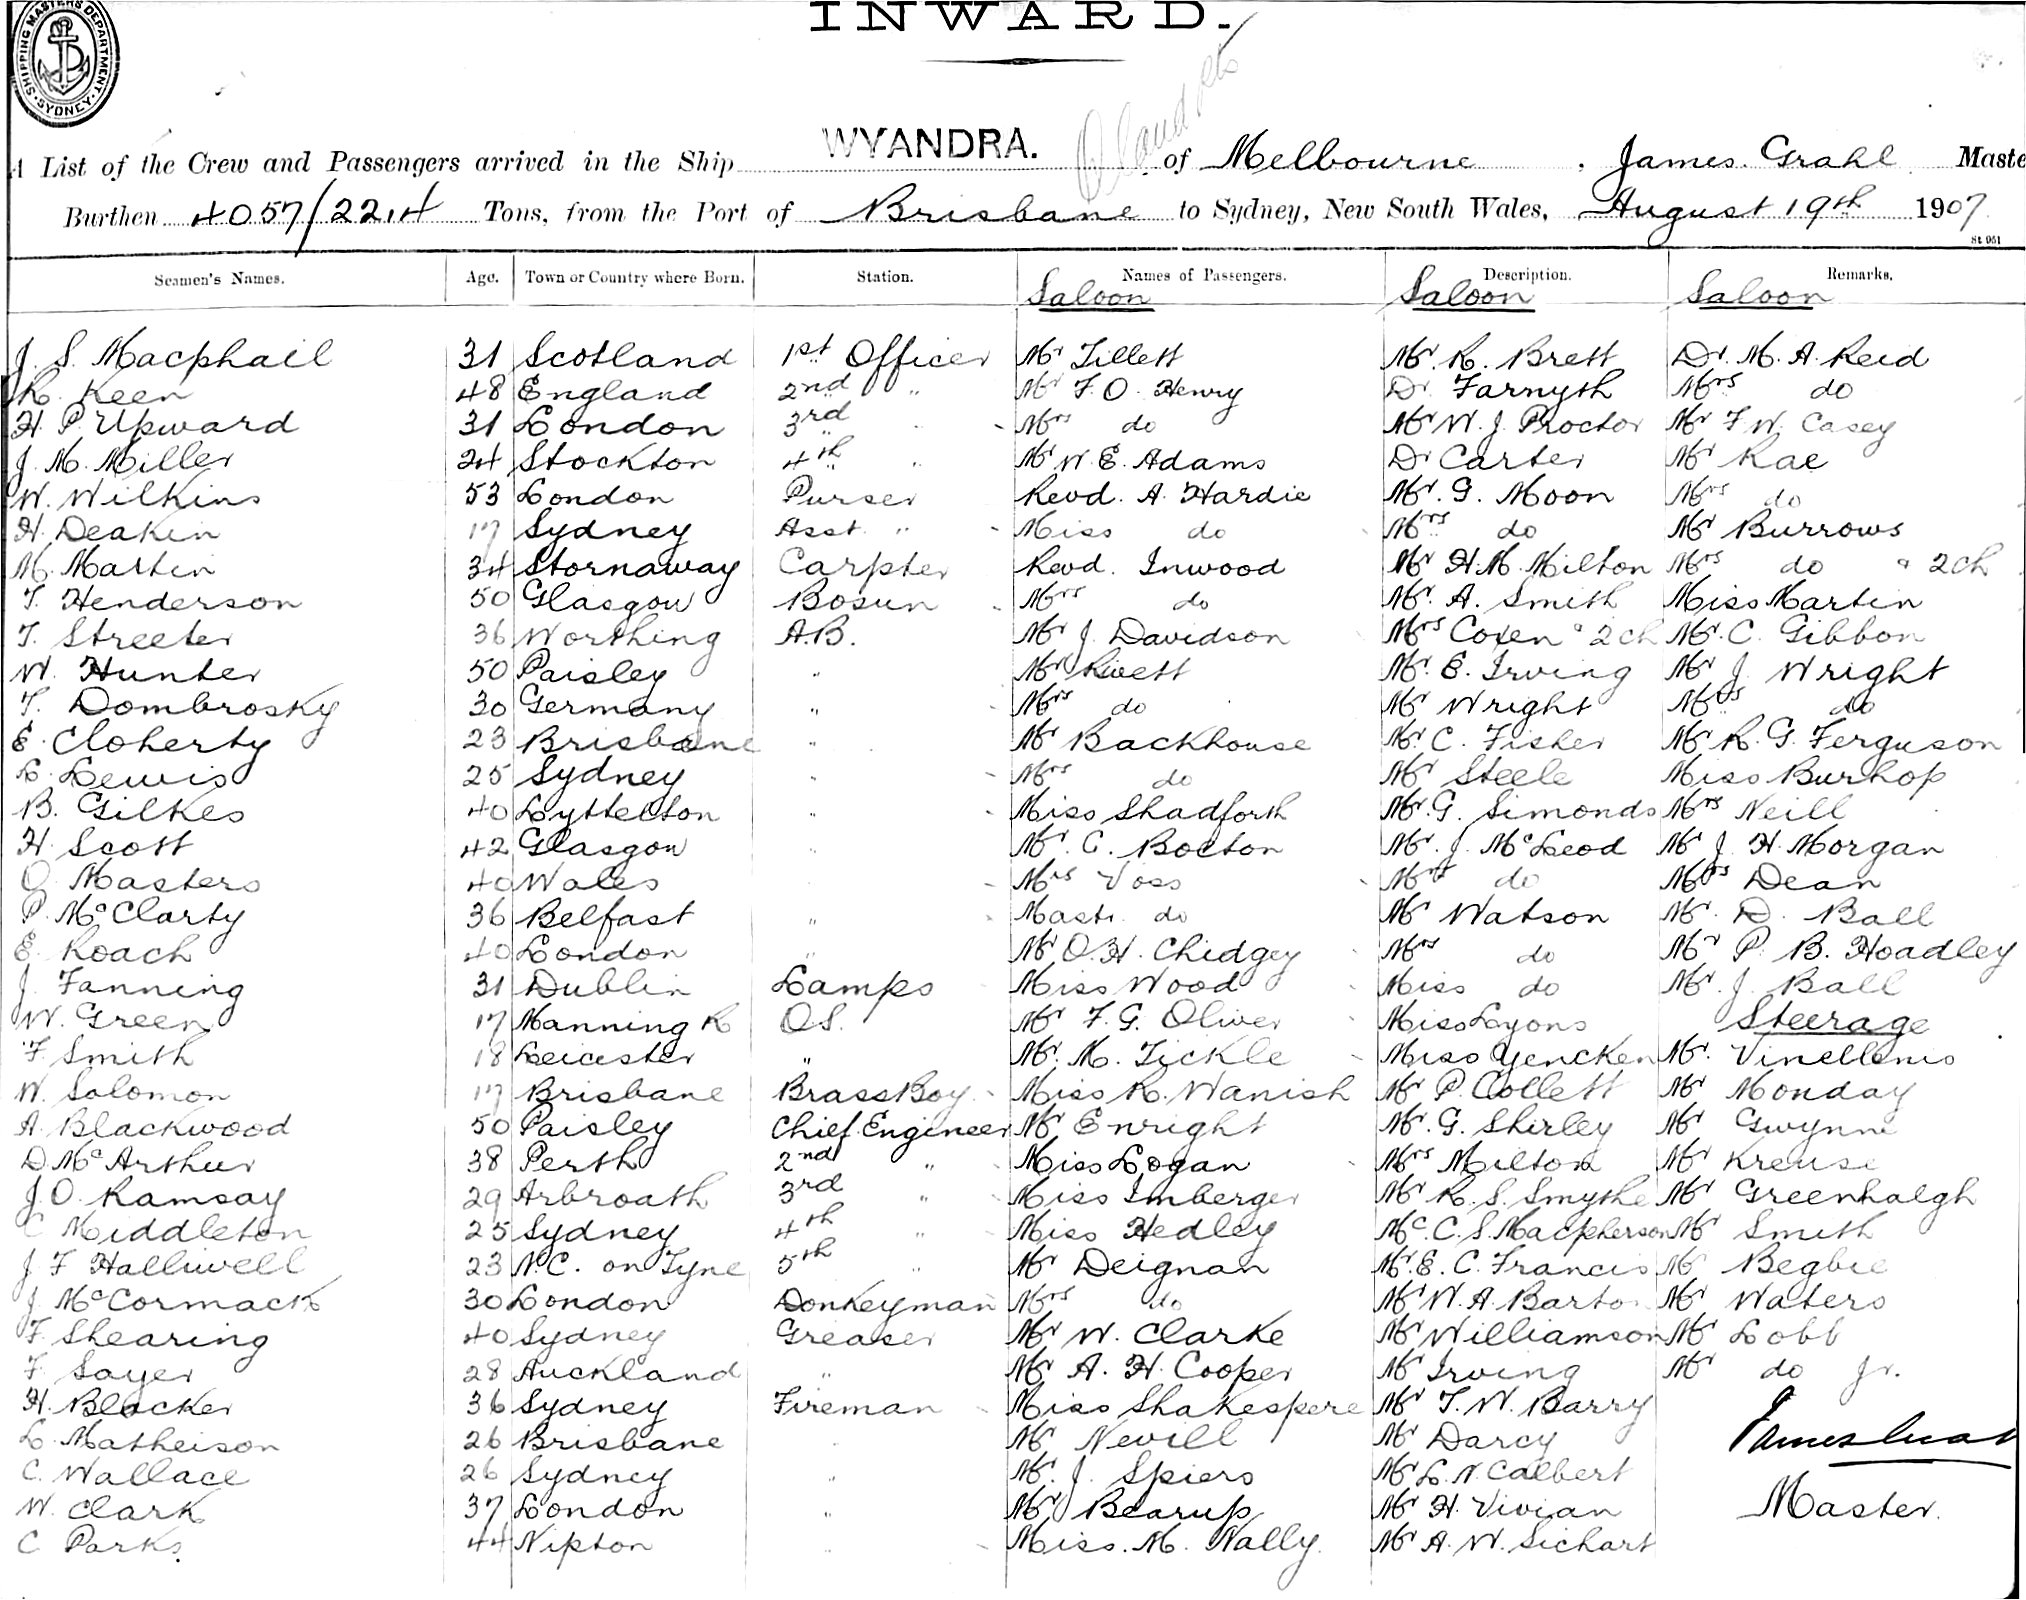 INWARD.
SHIPPING MASTERS DEPARTMENT SYDNEY
A List of the Crew and Passengers arrived in the Ship WYANDRA. of Melbourne, James Grahl Maste
Burthen 4057/2214 Tons, from the Port of Brisbane to Sydney, New South Wales, August 19th 1907
St 951
Seamen's Names. Age. Town or Country where Born. Station. Names of Passengers. Description. Remarks.
Saloon Saloon Saloon
J. S. Macphail 31 Scotland 1st Officer Mr Tillett Mr. R. Brett Dr. M. A. Reid
R. Keen 48 England 2nd " Mr F. O. Henry Dr Farnyth Mrs do
H. P. Upward 31 London 3rd " Mrs do Mr W. J. Proctor Mr F. W. Casey
J. M. Miller 24 Stockton 4th " Mr W. E. Adams Dr Carter Mr Rae
W. Wilkins 53 London Purser Revd. A. Hardie Mr. G. Moon Mrs do
H. Deakin 17 Sydney Asst. " Miss do Mrs do Mr Burrows
M. Martin 34 Stornaway Carpter Revd. Inwood Mr H. M. Milton Mrs do & 2 ch
T. Henderson 50 Glasgow Bosun Mrs do Mr. A. Smith Miss Martin
T. Streeter 36 Worthing A.B. Mr J. Davidson Mrs Coxen & 2 ch Mr. C. Gibbon
W. Hunter 50 Paisley " Mr Rivett Mr. E. Irving Mr J. Wright
T. Dombrosky 30 Germany " Mrs do Mr Wright Mrs do
E. Cloherty 23 Brisbane " Mr Backhouse Mr. C. Fisher Mr R. G. Ferguson
L. Lewis 25 Sydney " Mrs do Mr Steele Miss Burhop
B. Gilkes 40 Lyttelton " Miss Shadforth Mr. G. Simonds Mrs Neill
H. Scott 42 Glasgow " Mr. C. Bolton Mr. J. McLeod Mr J. H. Morgan
O. Masters 40 Wales Mrs Voss Mrs do Mrs Dean
P. McClarty 36 Belfast " Mastr. do Mr Watson Mr. D. Ball
E. Roach 40 London " Mr O. H. Chidgey Mrs do Mr P. B. Hoadley
J. Fanning 31 Dublin Lamps Miss Wood Miss do Mr. J. Ball
W. Green 17 Manning R O.S. Mr F. G. Oliver Miss Lyons Steerage
F. Smith 18 Leicester " Mr. M. Tickle Miss Yencken Mr.
W. Solomon 17 Brisbane Brass Boy Miss R. Wanish Mr P. Collett Mr Monday
A. Blackwood 50 Paisley Chief Engineer Mr Enright Mr. G. Shirley Mr Gwynne
D. McArthur 38 Perth 2nd " Miss Logan Mrs Milton Mr Kreuse
J. O. Ramsay 29 Arbroath 3rd " Miss Imberger Mr R. S. Smythe Mr Greenhalgh
C Middleton 25 Sydney 4th " Miss Hedley Mc. C. S. Macpherson Mr Smith
J. F Halliwell 23 N.C. on Tyne 5th " Mr Deignan Mr. E. C. Francis Mr Begbie
J. McCormack 30 London Donkeyman Mrs do Mr W. A. Barton Mr Waters
F. Shearing 40 Sydney Greaser Mr W. Clarke Mr Williamson Mr Lobb
F. Sayer 28 Auckland " Mr A. H. Cooper Mr Irving Mr do Jr.
H. Blacker 36 Sydney Fireman Miss Shakespere Mr T. W. Barry
L. Matheison 26 Brisbane Mr Nevill Mr Darcy James Grahl
C. Wallace 26 Sydney " Mr. J. Spiers Mr L. N. Calbert
W. Clark 37 London " Mr Bearup Mr H. Vivian Master.
C Parks. 44 Nipton Miss. M. Nally. Mr A. W. Sichart